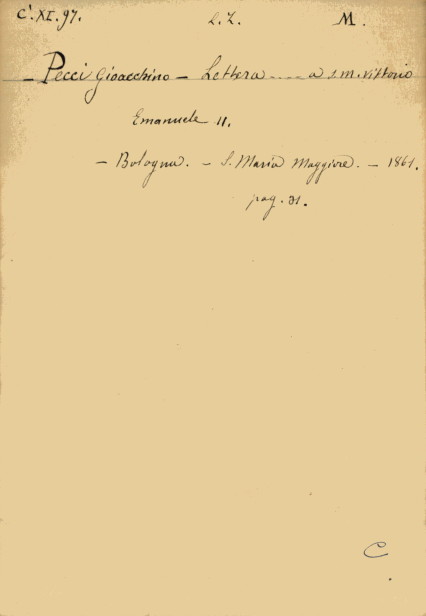 C'. XI. 97. L. Z. M.
– Pecci Gioacchino – Lettera ..... a S. M. Vittorio
Emanuele II.
– Bologna. – S. Maria Maggiore. – 1861.
pag. 31.
C